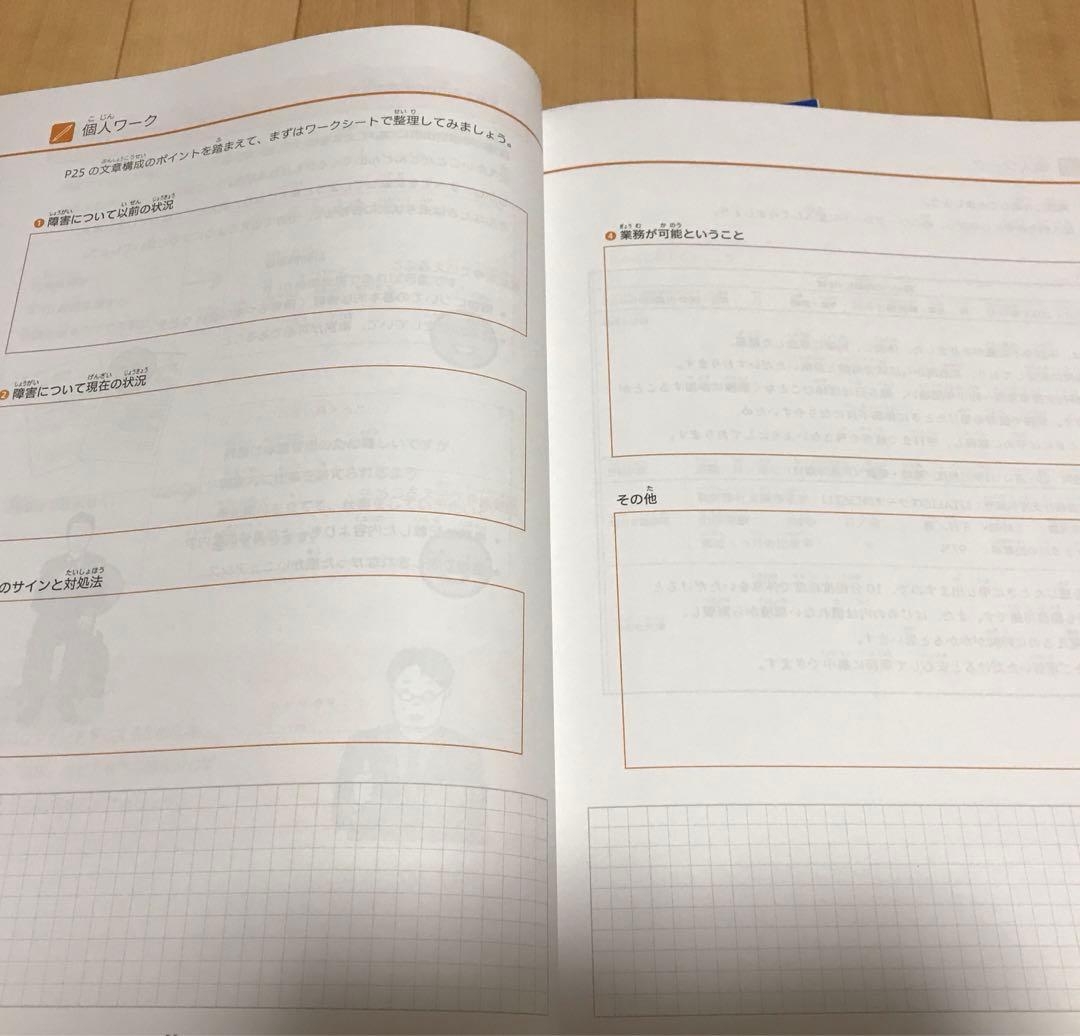 個人ワーク
P25 の文章構成のポイントを踏まえて、まずはワークシートで整理してみましょう。
❶ 障害について以前の状況
❷ 障害について現在の状況
のサインと対処法
❹ 業務が可能ということ
その他